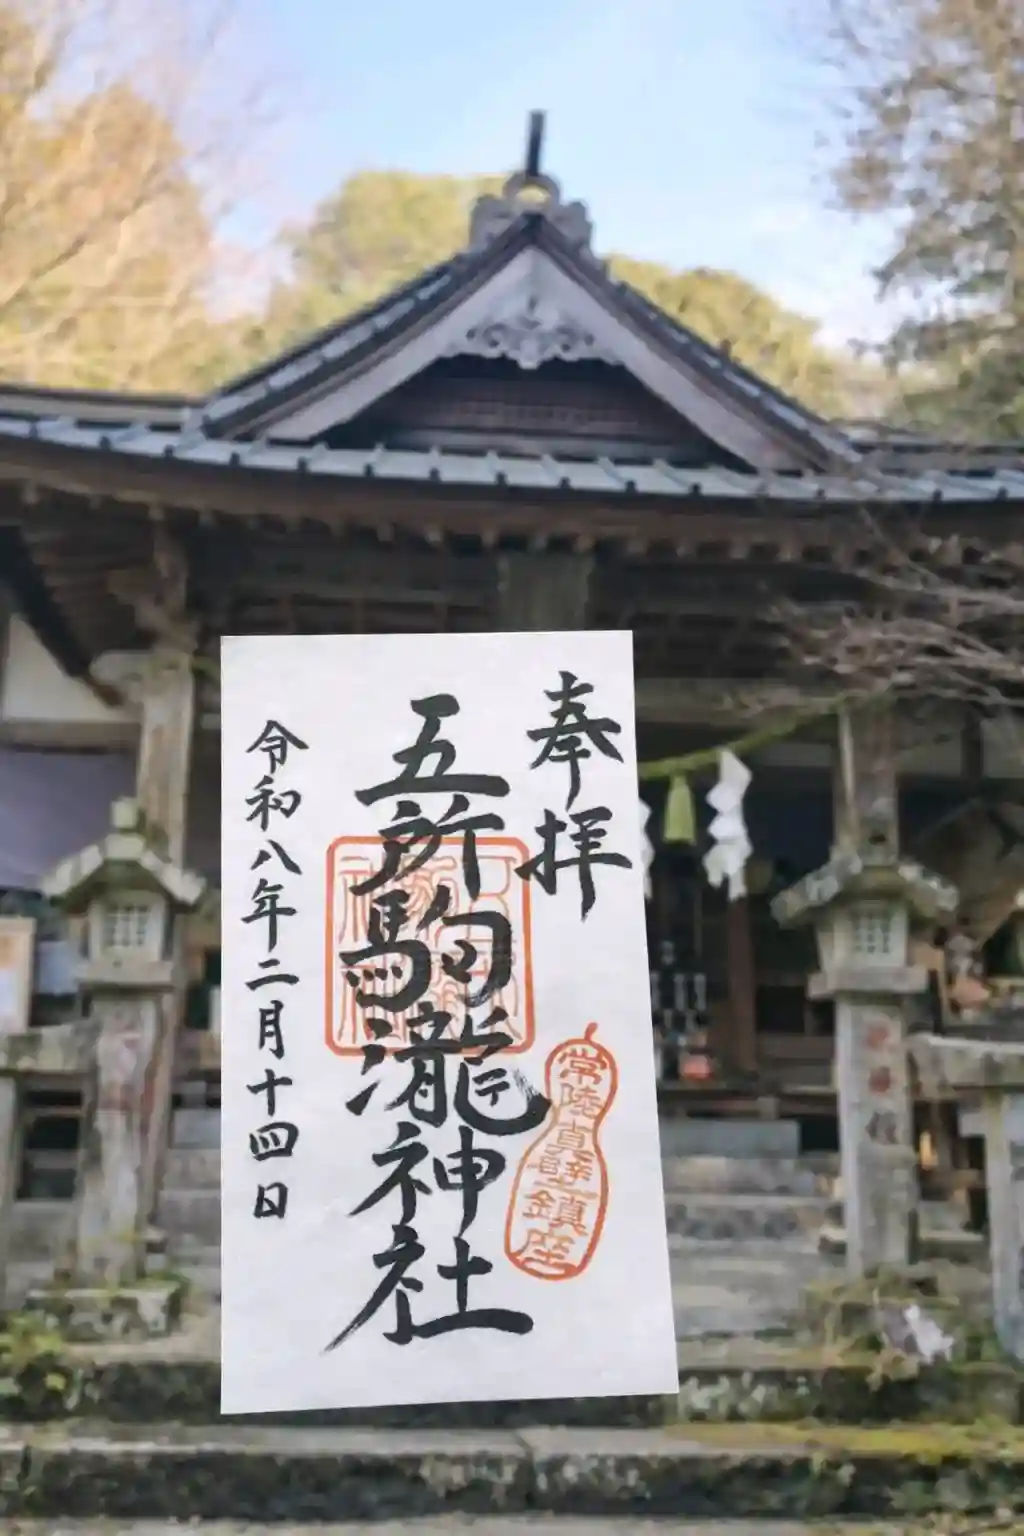 奉拝
五所駒瀧神社
常陸真壁鎮座
令和八年二月十四日